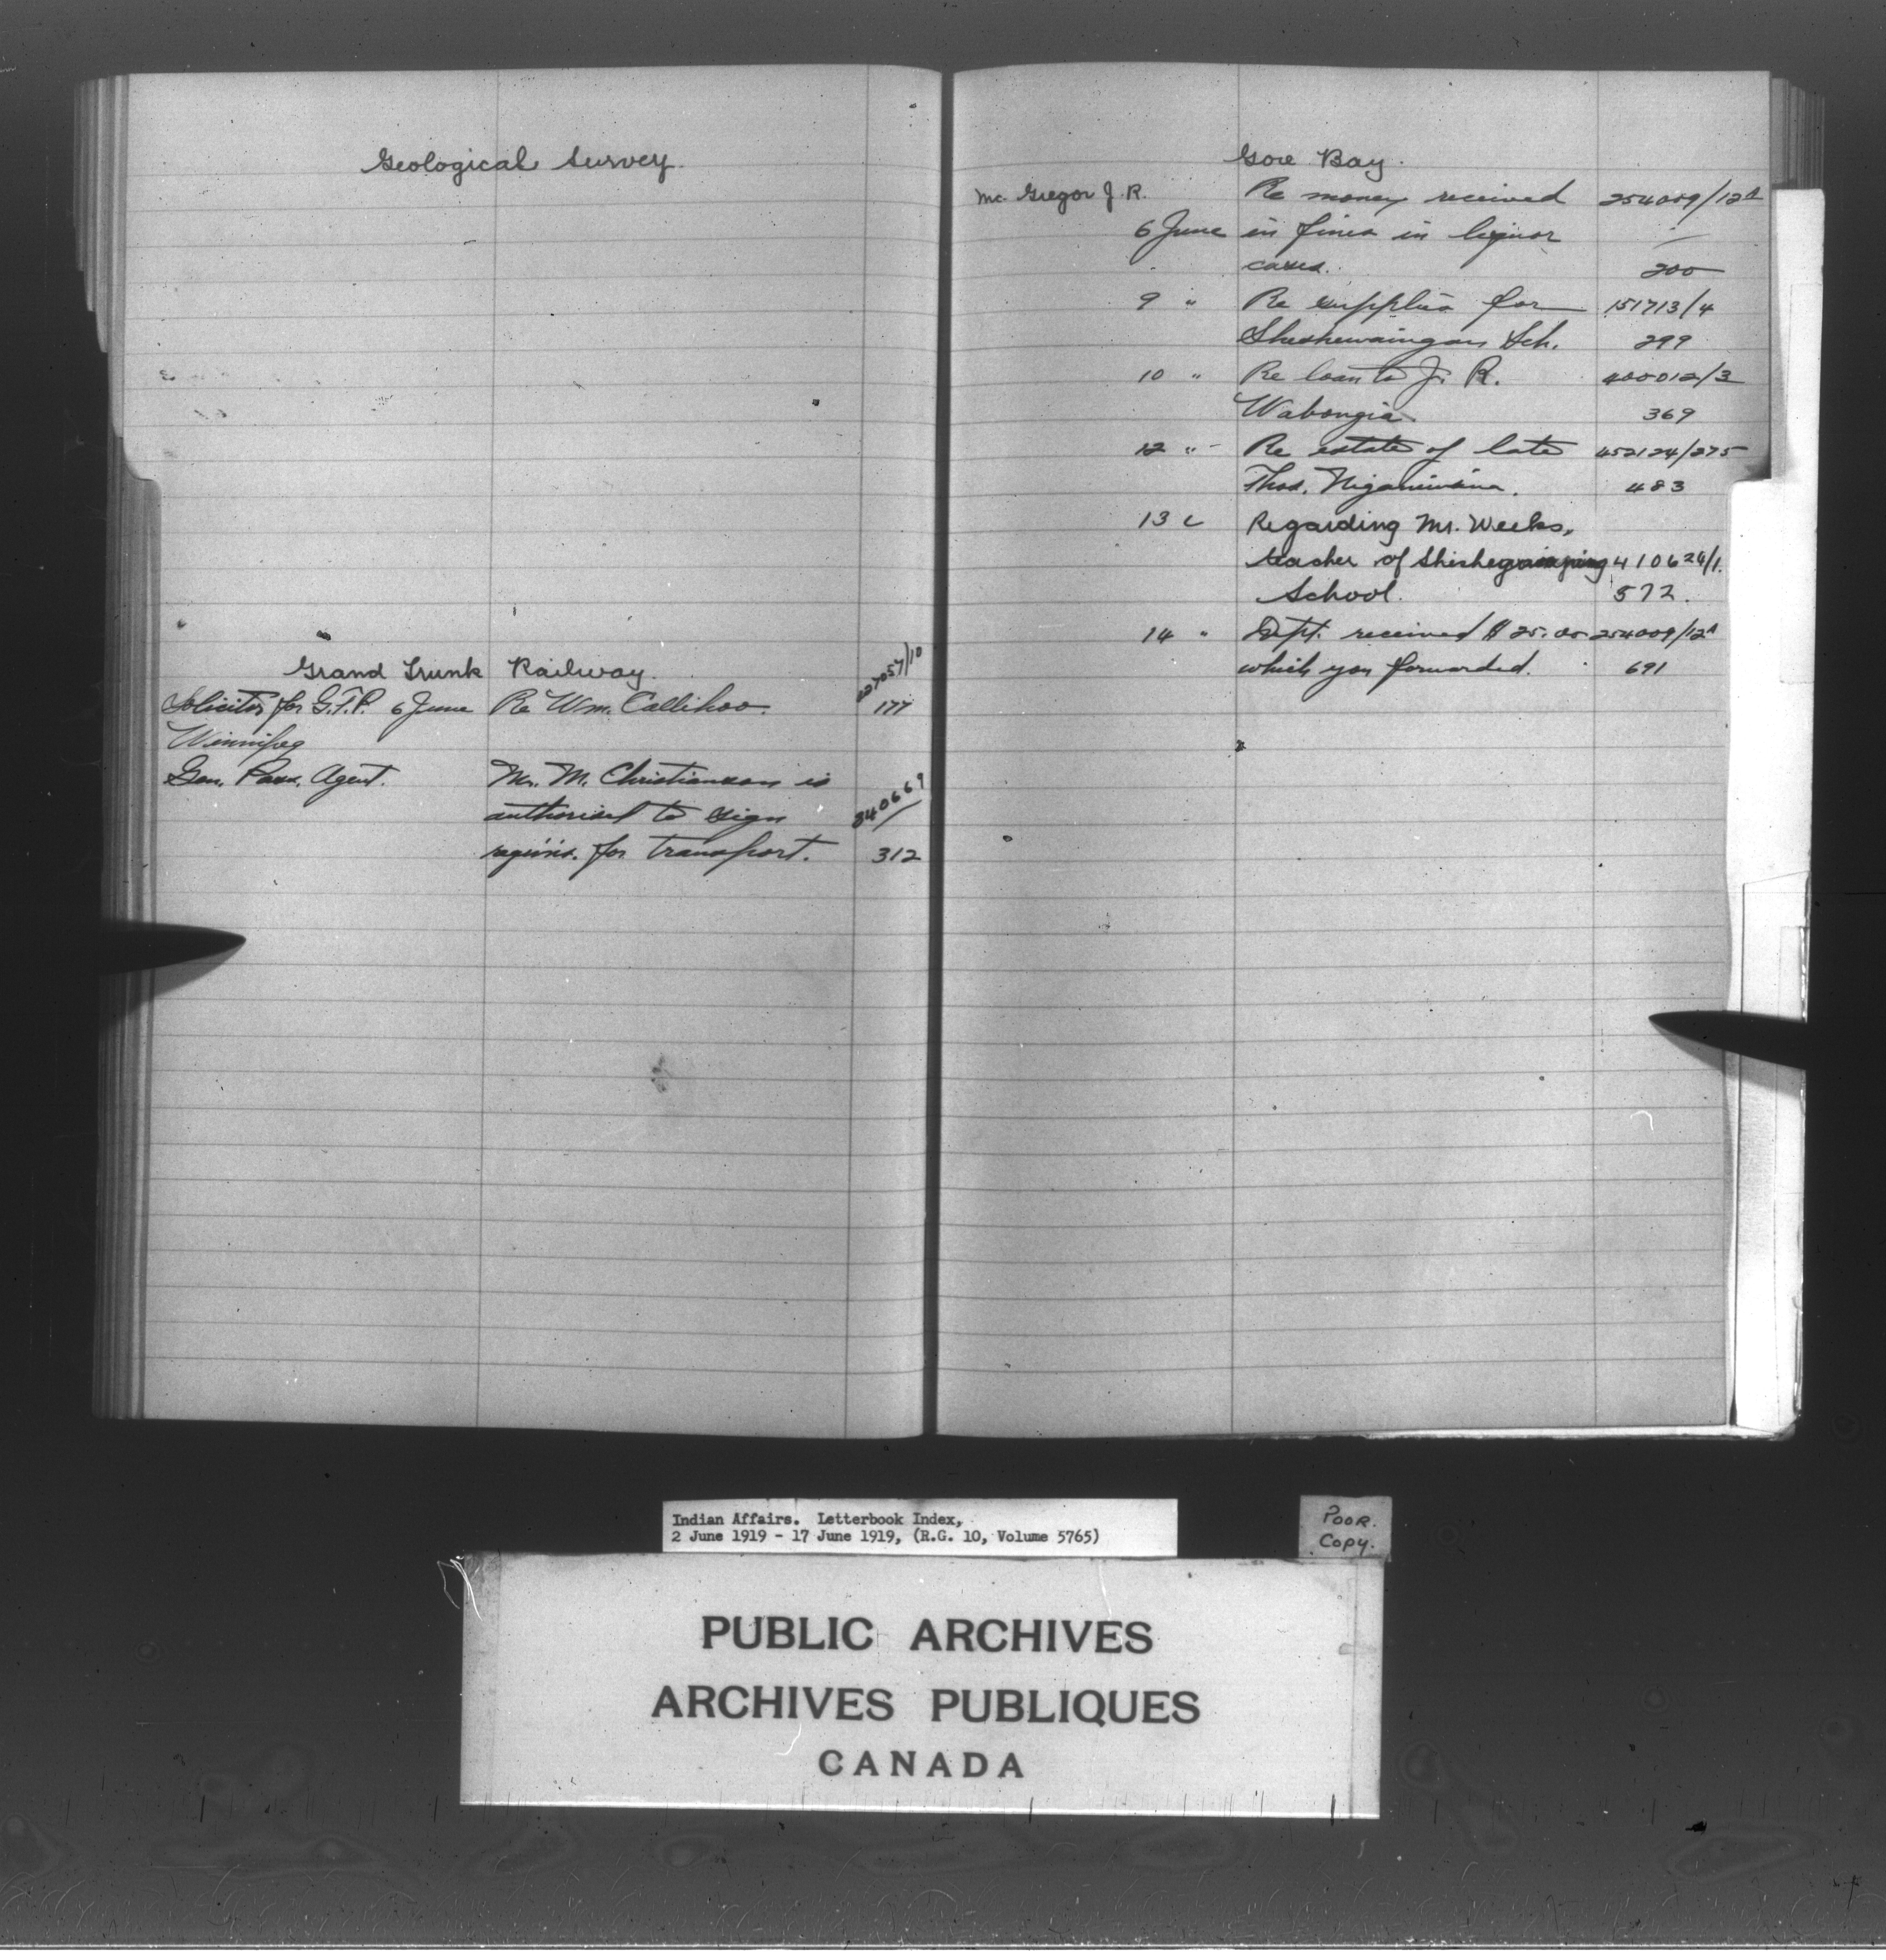 Geological Survey.
Grand Trunk Railway.
Solicitor for G.T.P. 6 June Re Wm. Callihoo. 177
Winnipeg
Gen. Pass. Agent. Mr. M. Christianson is
authorised to sign 340669/
requis. for transport. 312
Gore Bay.
Mc. Gregor J. R. Re money received 254009/12A
6 June in fines in liquor
cases. 200
9 " Re supplies for 151713/4
Sheshewaingan Sch. 299
10 " Re loan to J. R. 400012/3
Wabongia 369
12 " Re estate of late 452124/275
Thos. 483
13 " Regarding Mr. Weeks,
teacher of 410624/1.
School. 572.
14 " Dept. received $25.00 254009/12A
which you forwarded. 691
Indian Affairs. Letterbook Index,
2 June 1919 - 17 June 1919, (R.G. 10, Volume 5765)
POOR.
COPY.
PUBLIC ARCHIVES
ARCHIVES PUBLIQUES
CANADA